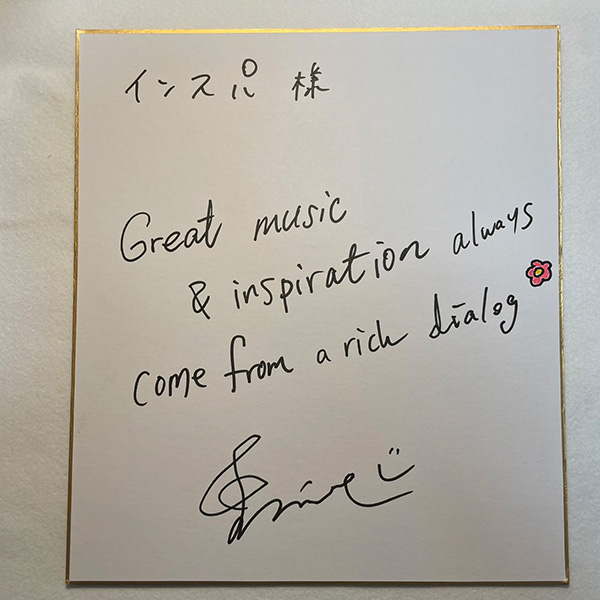 インスパ 様
Great music
& inspiration always
come from a rich dialog